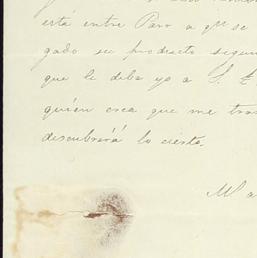 está entre Pero a qn se
gado su producto segun
que le deba yo a S. E
quién crea que me tra
descubrerá lo cierto.
Ma